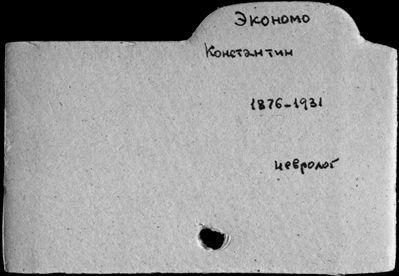 Экономо
Константин
1876-1931
невролог